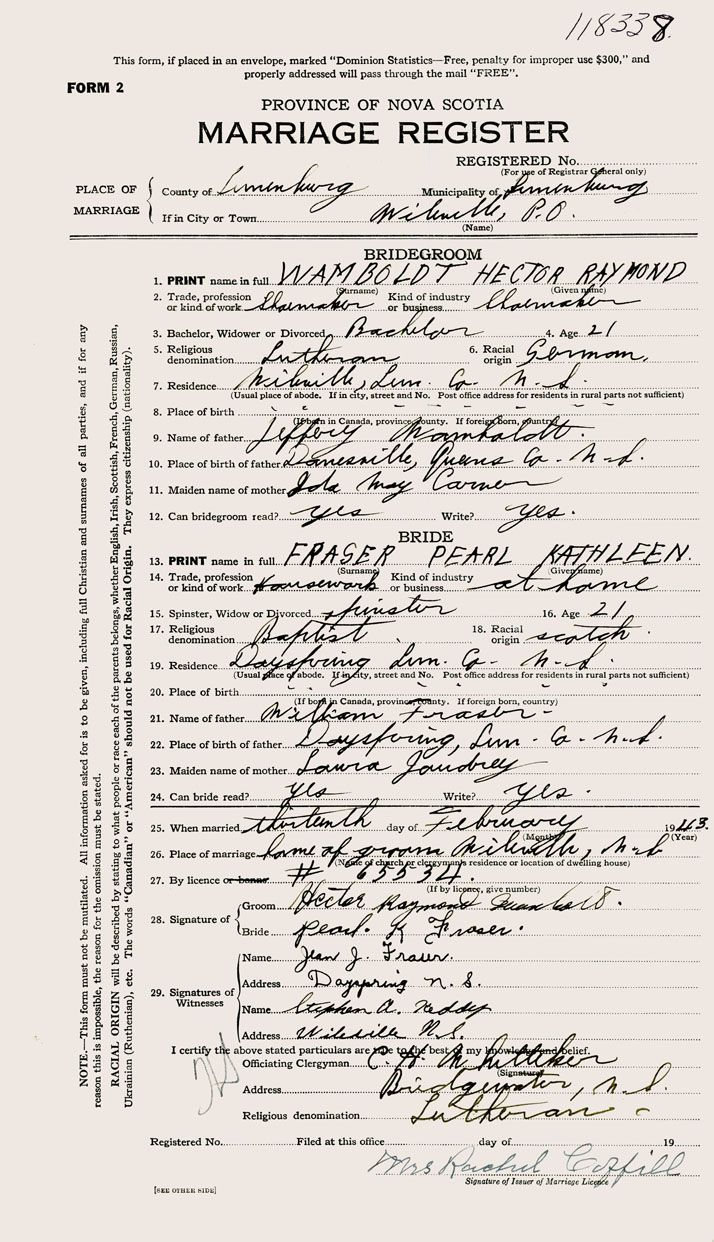 118338.
This form, if placed in an envelope, marked "Dominion Statistics—Free, penalty for improper use $300," and
properly addressed will pass through the mail "FREE".
FORM 2
PROVINCE OF NOVA SCOTIA
MARRIAGE REGISTER
REGISTERED No.
(For use of Registrar General only)
PLACE OF MARRIAGE
County of Lunenburg Municipality of Lunenburg
If in City or Town Wileville, P.O.
(Name)
BRIDEGROOM
1. PRINT name in full WAMBOLDT HECTOR RAYMOND
(Surname) (Given name)
2. Trade, profession or kind of work Shoemaker Kind of industry or business Shoemaker
3. Bachelor, Widower or Divorced Bachelor 4. Age 21
5. Religious denomination Lutheran 6. Racial origin German,
7. Residence Wileville, Lun. Co. N.S.
(Usual place of abode. If in city, street and No. Post office address for residents in rural parts not sufficient)
8. Place of birth
(If born in Canada, province, county. If foreign born, country)
9. Name of father Jeffery Wamboldt.
10. Place of birth of father Danesville, Queens Co. N.S.
11. Maiden name of mother Ida May
12. Can bridegroom read? yes Write? yes.
BRIDE
13. PRINT name in full FRASER PEARL KATHLEEN.
(Surname) (Given name)
14. Trade, profession or kind of work Housework Kind of industry or business at home
15. Spinster, Widow or Divorced spinster 16. Age 21
17. Religious denomination Baptist 18. Racial origin scotch.
19. Residence Dayspring Lun. Co. N.S.
(Usual place of abode. If in city, street and No. Post office address for residents in rural parts not sufficient)
20. Place of birth
(If born in Canada, province, county. If foreign born, country)
21. Name of father William Fraser
22. Place of birth of father Dayspring, Lun. Co. N.S.
23. Maiden name of mother Laura Jaudrey
24. Can bride read? yes Write? yes.
25. When married thirteenth day of February 1943.
(Month) (Year)
26. Place of marriage home of groom Wileville, N.S
(Name of church or clergyman's residence or location of dwelling house)
27. By licence or banns # 65534.
(If by licence, give number)
28. Signature of
Groom Hector Raymond Wamboldt.
Bride Pearl. K Fraser.
29. Signatures of Witnesses
Name Jean J. Fraser.
Address Dayspring N.S.
Name Stephen A. Neddy
Address Wileville N.S.
I certify the above stated particulars are true to the best of my knowledge and belief.
Officiating Clergyman C. H. Whitteker
(Signature)
Address Bridgewater, N.S.
Religious denomination Lutheran
Registered No. Filed at this office day of 19
Mrs Rachel Coffill
Signature of Issuer of Marriage Licence
[SEE OTHER SIDE]
NOTE.—This form must not be mutilated. All information asked for is to be given, including full Christian and surnames of all parties, and if for any
reason this is impossible, the reason for the omission must be stated.
RACIAL ORIGIN will be described by stating to what people or race each of the parents belongs, whether English, Irish, Scottish, French, German, Russian,
Ukrainian (Ruthenian), etc. The words "Canadian" or "American" should not be used for Racial Origin. They express citizenship (nationality).